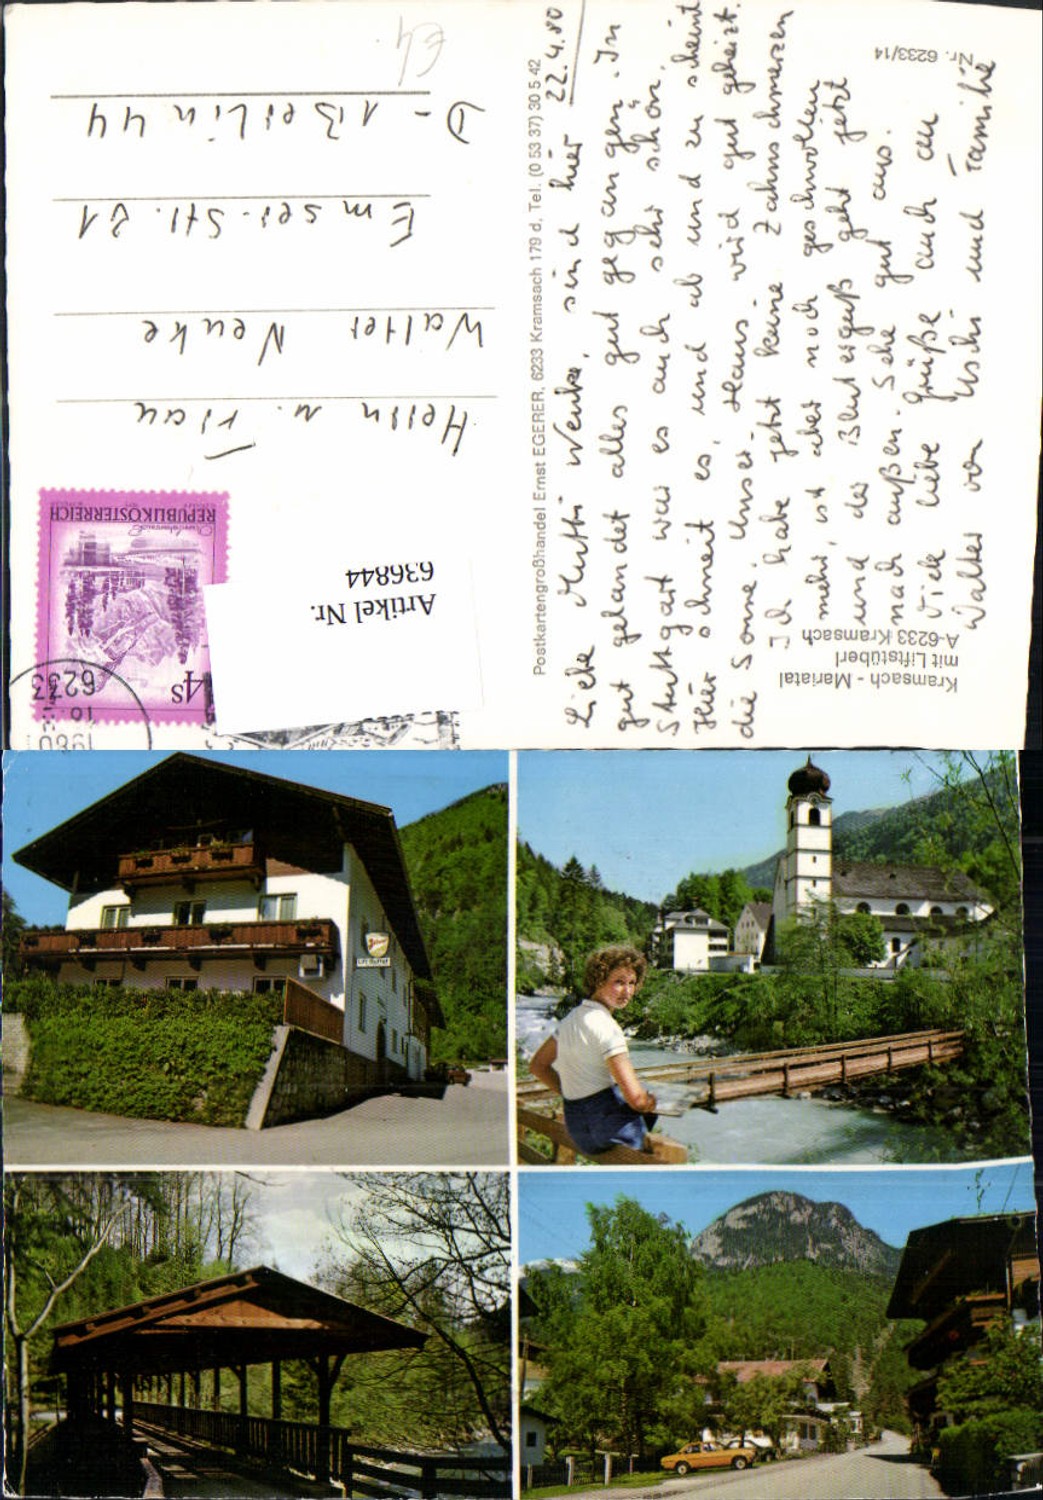 Kramsach - Mariatal
mit Liftstüberl
A-6233 Kramsach
Nr. 6233/14
Postkartengroßhandel Ernst EGERER, 6233 Kramsach 179 d, Tel. (0 53 37) 30 5 42
22.4.80
Liebe Mutti Wenke, sind hier
gut gelandet alles gut gegangen. In
Stuttgart war es auch sehr schön.
Hier schneit es, und ab und zu scheint
die Sonne. Unser Haus wird gut geheizt.
Ich habe jetzt keine Zahnschmerzen
mehr, ist aber noch geschwollen
und der Bluterguß geht jetzt
nach außen. Sehe gut aus.
Viele liebe Grüße auch an
Walter von Uschi und Familie
REPUBLIK ÖSTERREICH
4 S
6233
1980
Artikel Nr.
636844
Herrn u. Frau
Walter Wenke
Emser-Str. 21
D-1 Berlin 44